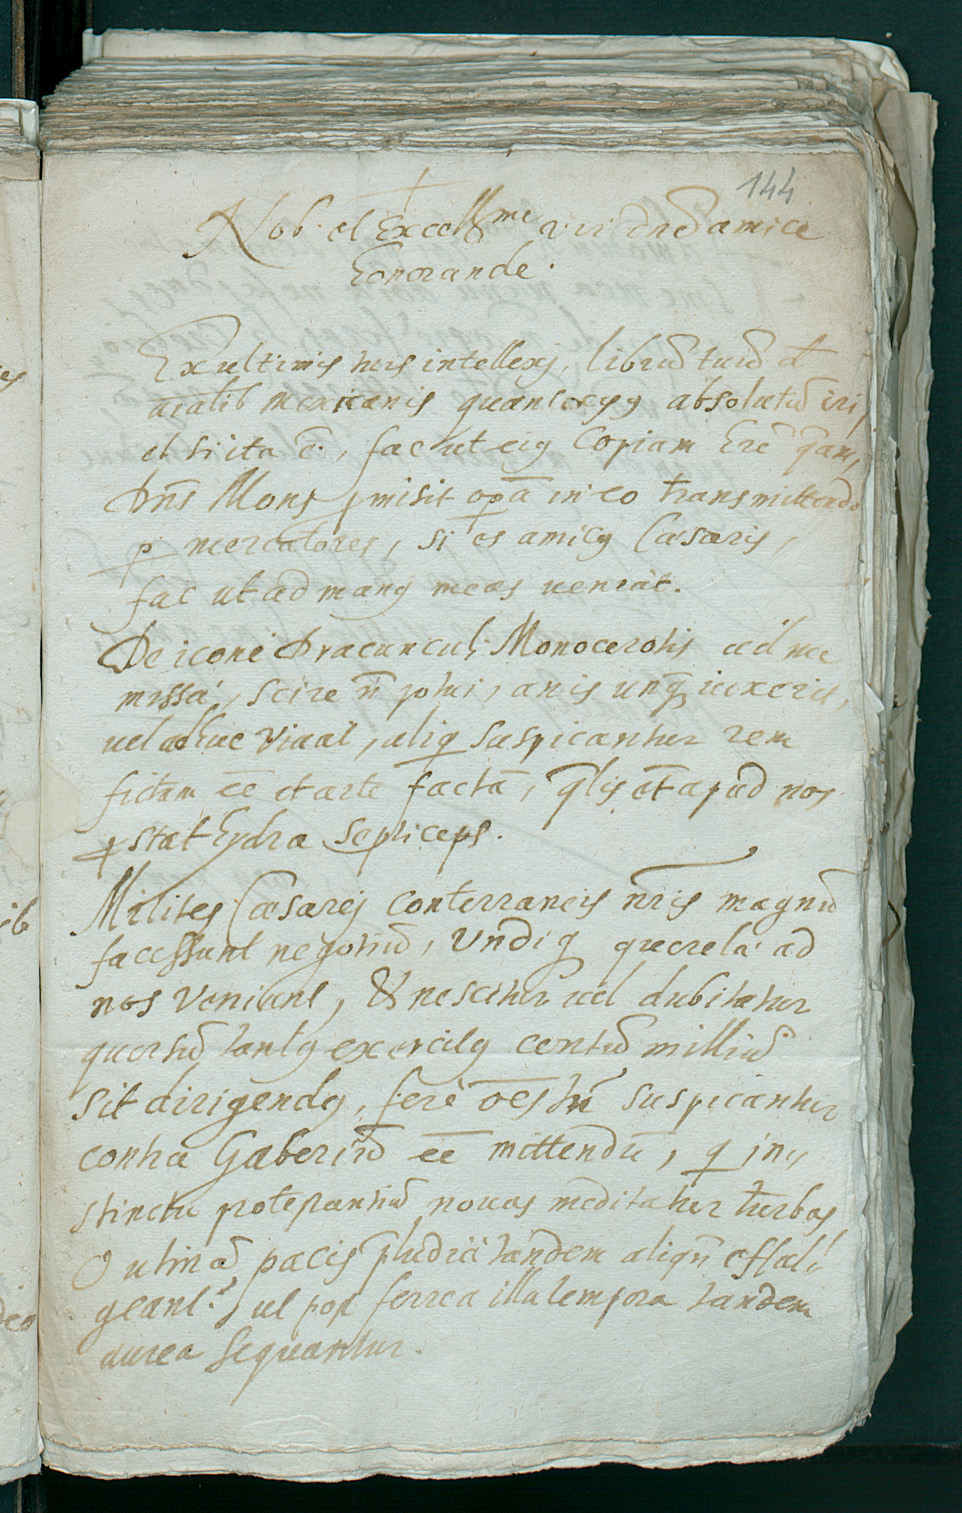 144
Nob. et Excellme vir dne amice
honorande.
Ex ultimis tuis intellexj, librū tuū
aīalib mexicanis quantocyꝰ absolutū iri,
et si ita ē., fac ut eiꝰ Copiam
Dn̄s Mons ꝓmisit opā in eo transmittendo
p mercatores, si es amicꝰ Cæsaris,
fac ut ad manꝰ meas veniāt.
De icone Dracunculi Monocerotis ad me
missa, scire n̄ potui, an is unq̄
uel adhuc viuat, aliq suspicantur rem
fictam ēē et arte factā, q̄lis et apud nos
ꝓstat hydra septiceps.
Milites Cæsarej conterraneis nr̄is magnū
facessunt negotiū, Vndiq querelæ ad
nos veniunt, & nescitur uel dubitatur
quorsū tantꝰ exercitꝰ centū milliū
sit dirigendꝰ, ferè oēs tn̄ suspicantur
contra Gaberiū ēē mittendū, q in
stinctu protestantiū nouas meditatur turbas
O utinā pacis p̄ludia tandem aliqn̄ effulgeant
ut post ferrea illa tempora tandem
aurea sequantur.